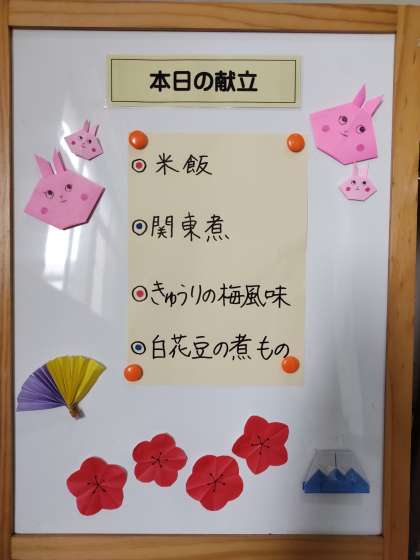 本日の献立
米飯
関東煮
きゅうりの梅風味
白花豆の煮もの